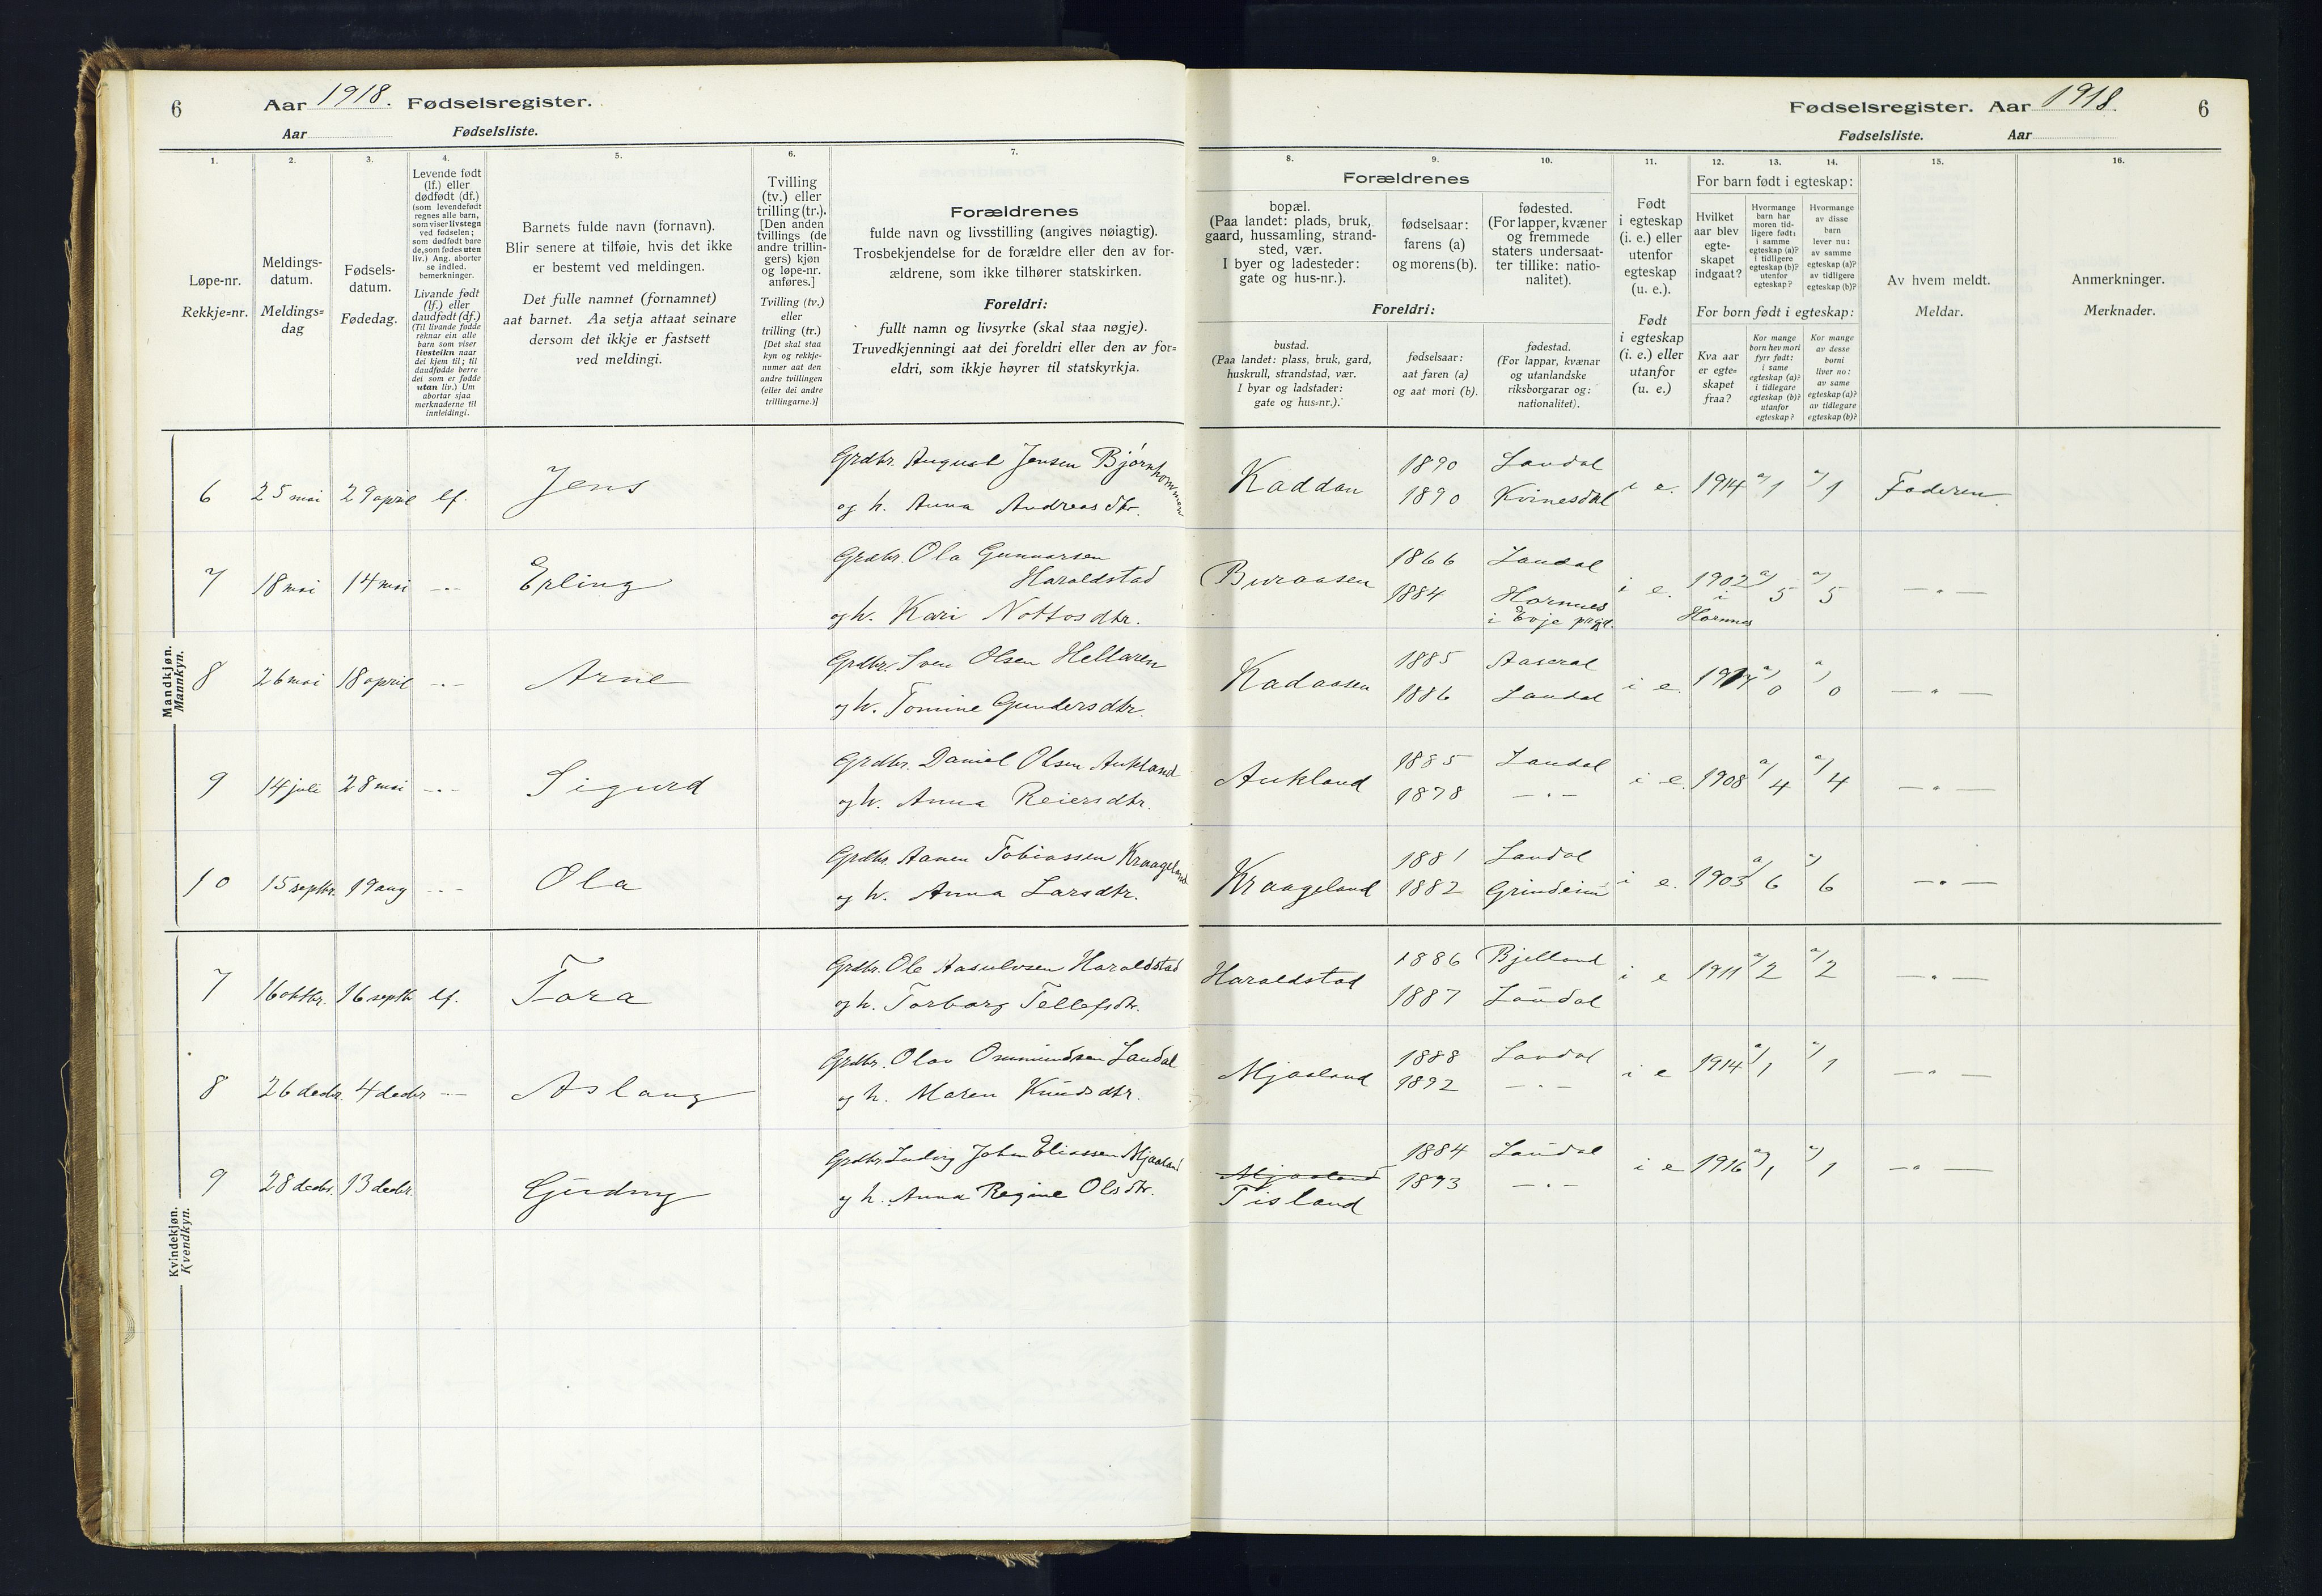 6 Aar 1918. Fødselsregister.
Aar Fødselsliste.
1. 2. 3. 4. 5. 6. 7.
Løpe-nr.
Rekkje=nr.
Meldings-
datum.
Meldings=
dag
Fødsels-
datum.
Fødedag.
Levende født
(lf.) eller
dødfødt (df.)
(som levendefødt
regnes alle barn,
som viser livstegn
ved fødselen;
som dødfødt bare
de, som fødes uten
liv.) Ang. aborter
se indled.
bemerkninger.
Livande født
(lf.) eller
daudfødt (df.)
(Til livande fødde
reknar ein alle
barn som viser
livsteikn naar
dei kjem til; til
daudfødde berre
dei som er fødde
utan liv.) Um
abortar sjaa
merknaderne til
innleidingi.
Barnets fulde navn (fornavn).
Blir senere at tilføie, hvis det ikke
er bestemt ved meldingen.
Det fulle namnet (fornamnet)
aat barnet. Aa setja attaat seinare
dersom det ikkje er fastsett
ved meldingi.
Tvilling
(tv.) eller
trilling (tr.).
[Den anden
tvillings (de
andre trillin-
gers) kjøn
og løpe-nr.
anføres.]
Tvilling (tv.)
eller
trilling (tr.)
[Det skal staa
kyn og rekkje-
numer aat den
andre tvillingen
(eller dei andre
trillingarne.)]
Forældrenes
fulde navn og livsstilling (angives nøiagtig).
Trosbekjendelse for de forældre eller den av for-
ældrene, som ikke tilhører statskirken.
Foreldri:
fullt namn og livsyrke (skal staa nøgje).
Truvedkjenningi aat dei foreldri eller den av for=
eldri, som ikkje høyrer til statskyrkja.
Mandkjøn.
Mannkyn.
6 25 mai 29 april lf. Jens
Grdbr. August Jensen Bjørnhommen
og h. Anna Andreasdtr.
7 18 mai 14 mai —"— Erling
Grdbr. Ola Gunnarsen
Haraldstad
og h. Kari Nottosdtr.
8 26 mai 18 april —"— Arne
Grdbr. Sven Olsen Hellaren
og h. Tomine Gundersdtr.
9 14 juli 28 mai —"— Sigurd
Grdbr. Daniel Olsen Aukland
og h. Anna Reiersdtr.
10 15 septbr. 19 aug —"— Ola
Grdbr. Aanen Tobiassen Kraageland
og h. Anna Larsdtr.
Kvindekjøn.
Kvendkyn.
7 16 oktbr. 16 septb lf. Tora
Grdbr. Ole Aasulvsen Haraldstad
og h. Torborg Tellefsdtr.
8 26 decbr. 4 decbr —"— Aslaug
Grdbr. Olav Ommundsen Laudal
og h. Maren Knudsdtr.
9 28 decbr. 13 decbr. Gudny
Grdbr. Ludvig Johan Eliassen Mjaaland
og h. Anna Regine Olsdtr.
Fødselsregister. Aar 1918. 6
Fødselsliste. Aar
8. 9. 10. 11. 12. 13. 14. 15. 16.
Forældrenes
bopæl.
(Paa landet: plads, bruk,
gaard, hussamling, strand-
sted, vær.
I byer og ladesteder:
gate og hus-nr.).
fødselsaar:
farens (a)
og morens (b).
fødested.
(For lapper, kvæner
og fremmede
staters undersaat-
ter tillike: natio-
nalitet).
Foreldri:
bustad.
(Paa landet: plass, bruk, gard,
huskrull, strandstad, vær.
I byar og ladstader:
gate og hus=nr.).
fødselsaar:
aat faren (a)
og aat mori (b).
fødestad.
(For lappar, kvænar
og utanlandske
riksborgarar og:
nationalitet).
Født
i egteskap
(i. e.) eller
utenfor
egteskap
(u. e.).
Født
i egteskap
(i. e.) eller
utanfor
(u. e.)
For barn født i egteskap:
Hvilket
aar blev
egte-
skapet
indgaat?
Hvormange
barn har
moren tid-
ligere født:
i samme
egteskap (a)?
i tidligere
egteskap (b)?
utenfor
egteskap?
Hvormange
av disse
barn
lever nu:
av samme
egteskap (a)?
av tidligere
egteskap (b)?
For born født i egteskap:
Kva aar
er egte=
skapet
fraa?
Kor mange
born hev mori
fyrr født:
i same
egteskap (a)?
i tidlegare
egteskap (b)?
utanfor
egteskap?
Kor mange
av desse
borni
liver no:
av same
egteskap (a)?
av tidlegare
egteskap (b)?
Av hvem meldt.
Meldar.
Anmerkninger.
Merknader.
Kaddan 1890 Laudal i e. 1914 a/1 a/1 Faderen
1890 Kvinesdal
Buraasen 1866 Laudal i e. 1902 a/5 a/5 —"—
1884 Hornnes i
i Evje prgd. Hornnes
Kadaasen 1885 Aaseral i e. 1917 a/0 a/0 —"—
1886 Laudal
Aukland 1885 Laudal i e. 1908 a/4 a/4 —"—
1878 —"—
Kraageland 1881 Laudal i e. 1903 a/6 a/6 —"—
1882 Grindeim
Haraldstad 1886 Bjelland i e 1911 a/2 a/2 —"—
1887 Laudal
Mjaaland 1888 Laudal i e 1914 a/1 a/1 —"—
1892 —"—
Mjaaland 1884 Laudal i e 1916 a/1 a/1 —"—
Tisland 1893 —"—